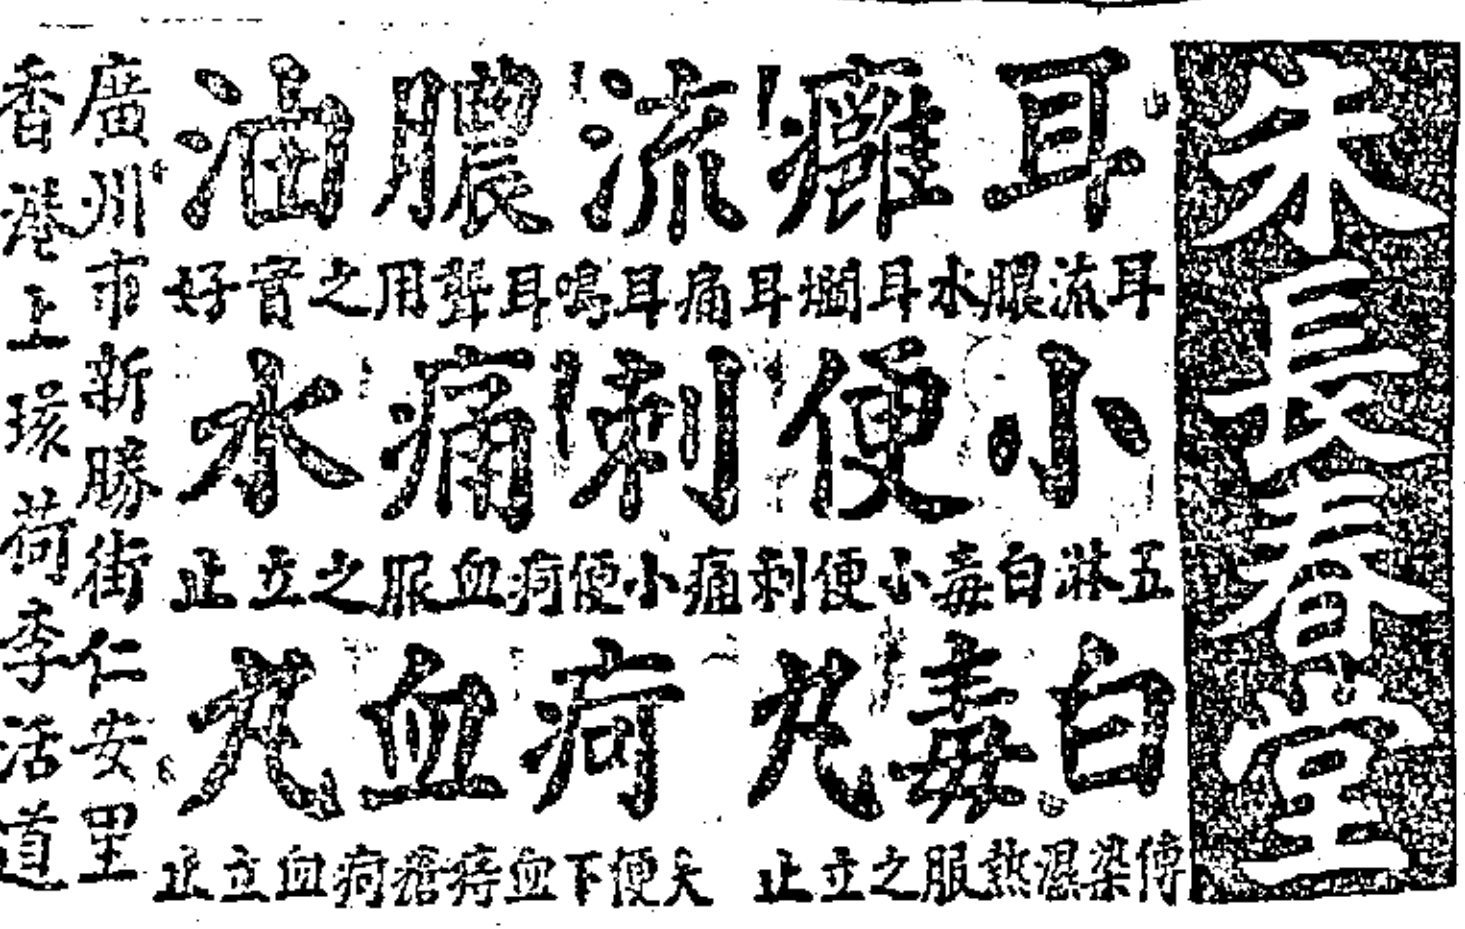 朱長春堂
耳癰流膿油
耳流膿水耳爛耳痛耳鳴耳聾用之實好
小便刺痛水
五淋白毒小便刺痛小便疴血服之立止
白毒丸
傳染濕熱服之立止
疴血丸
大便下血痔瘡疴血立止
廣州市新勝街仁安里
香港上環荷李活道